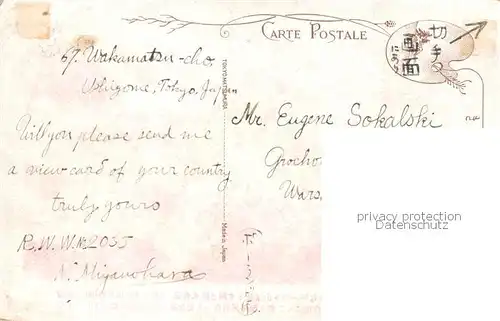 CARTE POSTALE
切手の
画面
67. Wakamatsu-cho,
Ushigome, Tokyo, Japan
Will you please send me
a view card of your country
truly yours
R.W.W. № 2035
N. Miyanohara
TOKYO MITSUMURA
Made in Japan
Mr. Eugene Sokalski
Grocho
Wars
privacy protection
Datenschutz